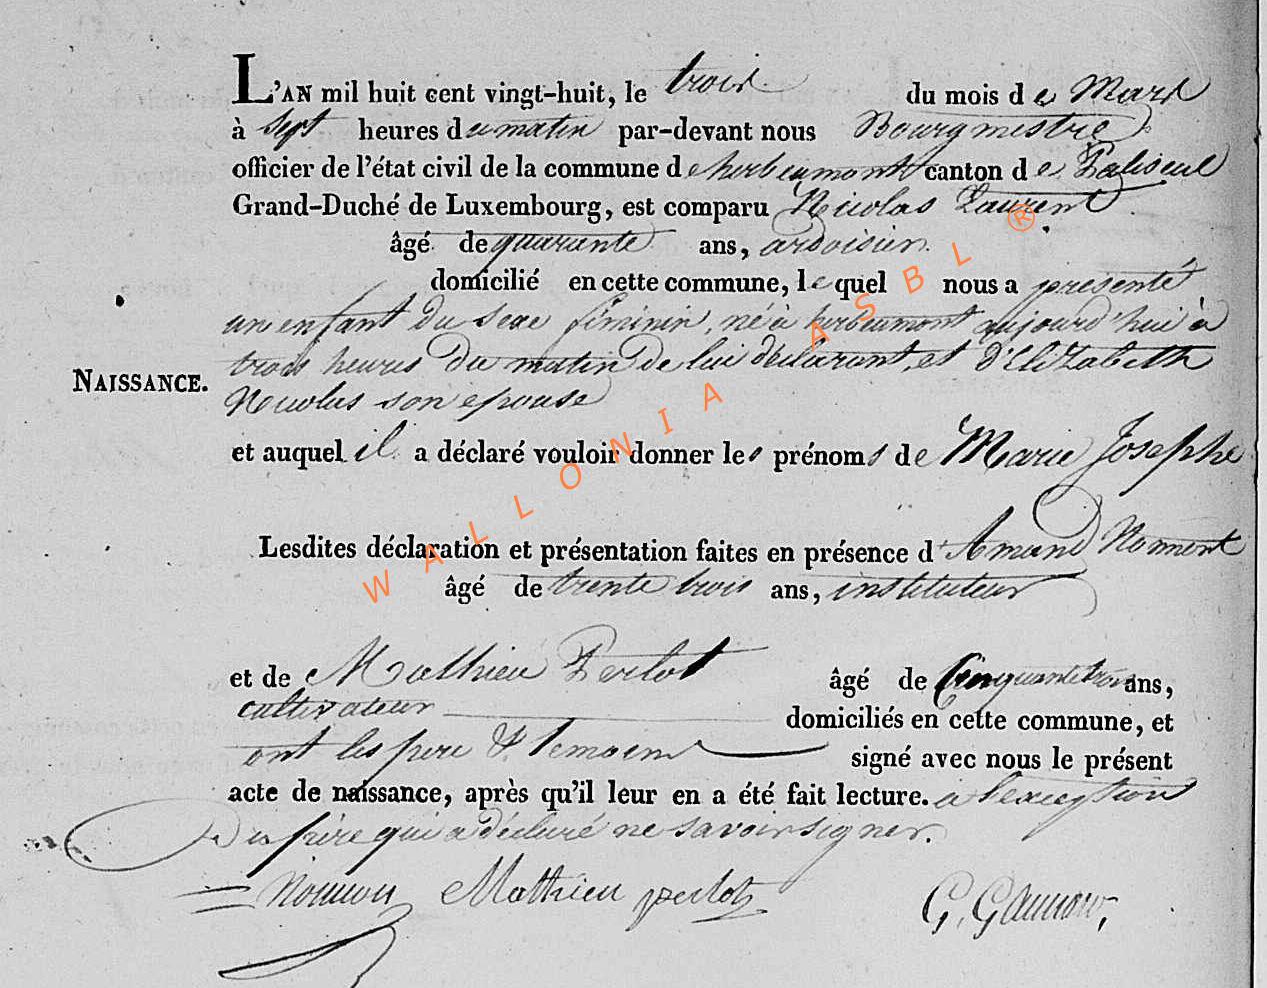 L'AN mil huit cent vingt-huit, le trois du mois de Mars
à sept heures du matin par-devant nous Bourgmestre
officier de l'état civil de la commune de herbeumont canton de Paliseul
Grand-Duché de Luxembourg, est comparu Nicolas Laurent
âgé de quarante ans, ardoisier
domicilié en cette commune, lequel nous a présenté
un enfant du sexe féminin, né à herbeumont aujourd'hui à
trois heures du matin de lui déclarant, et d'Elizabeth
NAISSANCE.
Nicolas son épouse
et auquel il a déclaré vouloir donner les prénoms de Marie Josephe
Lesdites déclaration et présentation faites en présence d'Amand
âgé de trente trois ans, instituteur
et de Mathieu Perlot âgé de Cinquante trois ans,
cultivateur domiciliés en cette commune, et
ont les père & temoins signé avec nous le présent
acte de naissance, après qu'il leur en a été fait lecture. a l'exception
Du père qui a déclaré ne savoir signer.
Mathieu perlot G.
WALLONIA ASBL ®